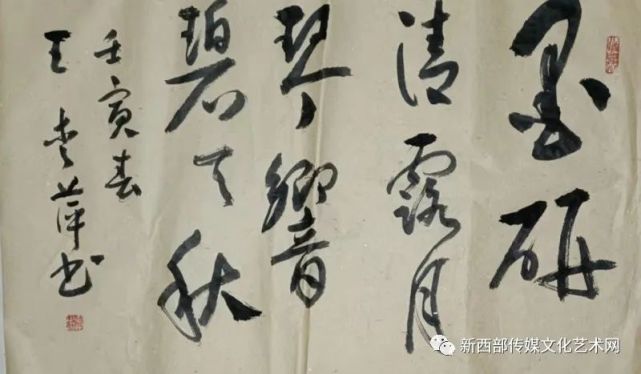 墨研
清露月
琴響
碧天秋
壬寅春
王春萍书
新西部传媒文化艺术网